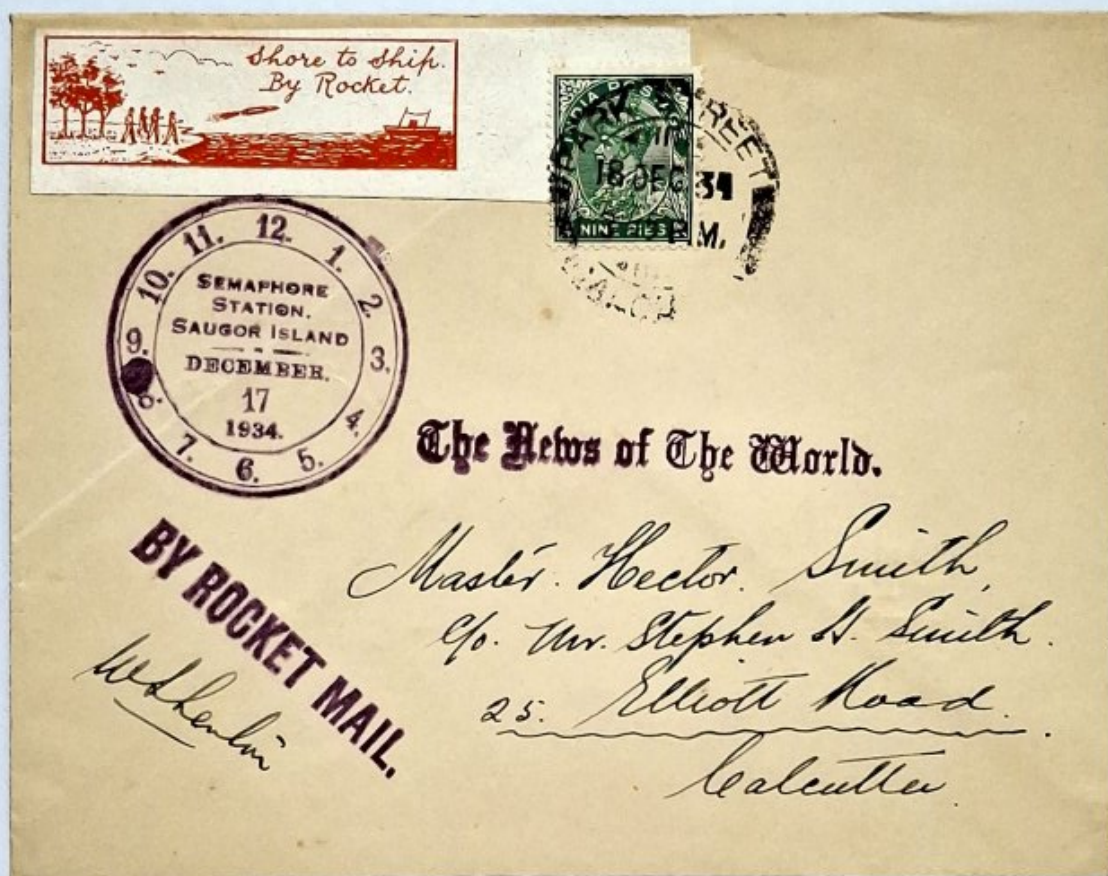 Shore to Ship.
By Rocket.
INDIA POSTAGE
NINE PIES
PARK STREET
18 DEC 34
P.M.
12. 1. 2. 3. 4. 5. 6. 7. 8. 9. 10. 11.
SEMAPHORE
STATION.
SAUGOR ISLAND
DECEMBER.
17
1934.
The News of The World.
BY ROCKET MAIL.
Master. Hector. Smith,
C/o. Mr. Stephen H. Smith.
25. Elliott Road.
Calcutta